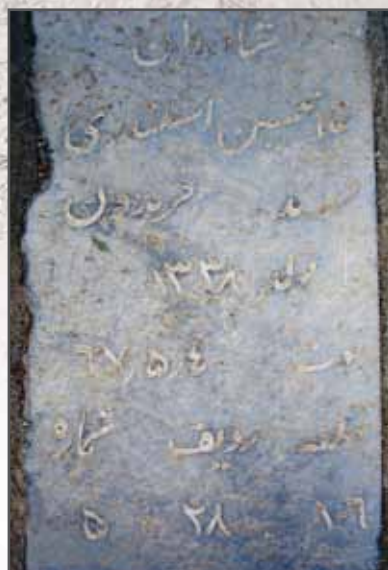 شادروان
غلامحسین اسکندری
فرزند فریدون
تولد ۱۳۳۸
فوت ۴ر۵ر۶۷
قطعه ردیف شماره
۱۰۶ ۲۸ ۵